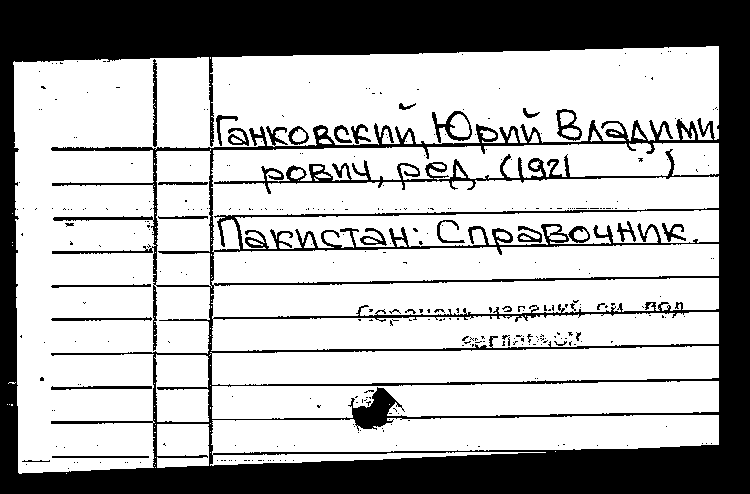 Ганковский, Юрий Владими-
рович, ред. (1921 )
Пакистан: Справочник.
Перечень изданий см. под
заглавием